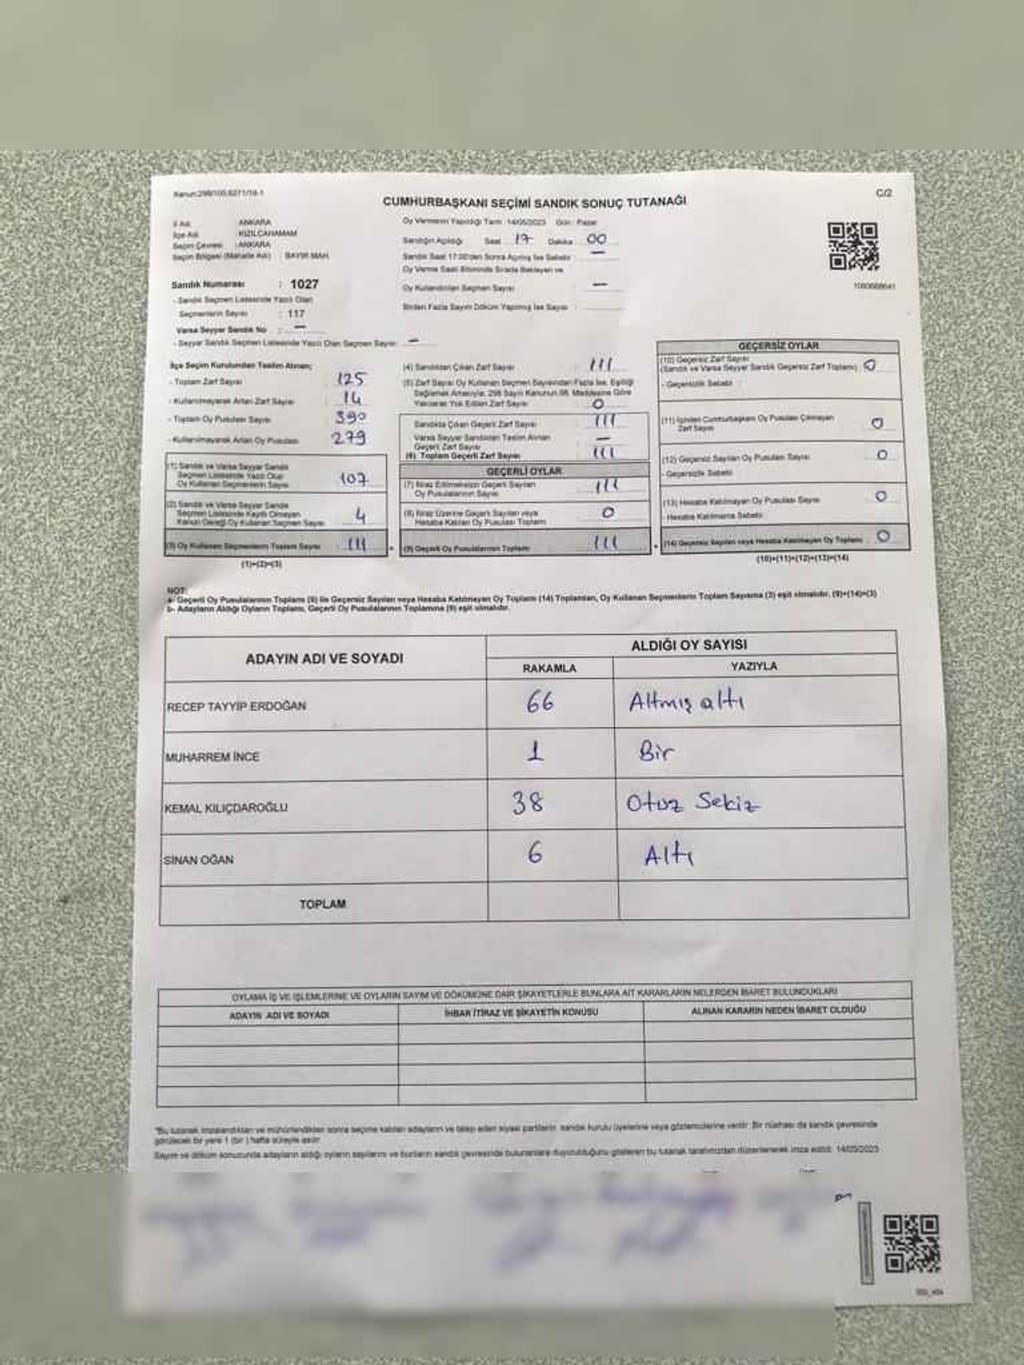 Kanun:298/105,6271/19-1
C/2
CUMHURBAŞKANI SEÇİMİ SANDIK SONUÇ TUTANAĞI
İl Adı : ANKARA
İlçe Adı : KIZILCAHAMAM
Seçim Çevresi : ANKARA
Seçim Bölgesi (Mahalle Adı) : BAYIR MAH.
Sandık Numarası : 1027
- Sandık Seçmen Listesinde Yazılı Olan
Seçmenlerin Sayısı : 117
Varsa Seyyar Sandık No : —
- Seyyar Sandık Seçmen Listesinde Yazılı Olan Seçmen Sayısı: —
Oy Vermenin Yapıldığı Tarih : 14/05/2023 Gün : Pazar
Sandığın Açılışı Saat 17 Dakika 00
Sandık Saat 17:00'den Sonra Açılmış İse Sebebi : —
Oy Verme Saati Bitiminde Sırada Bekleyen ve
Oy Kullandırılan Seçmen Sayısı : —
Birden Fazla Sayım Döküm Yapılmış İse Sayısı :
1080668641
İlçe Seçim Kurulundan Teslim Alınan;
- Toplam Zarf Sayısı 125
- Kullanılmayarak Artan Zarf Sayısı 14
- Toplam Oy Pusulası Sayısı 390
- Kullanılmayarak Artan Oy Pusulası 279
(1) Sandık ve Varsa Seyyar Sandık
Seçmen Listesinde Yazılı Olup
Oy Kullanan Seçmenlerin Sayısı 107
(2) Sandık ve Varsa Seyyar Sandık
Seçmen Listesinde Kayıtlı Olmayan
Kanun Gereği Oy Kullanan Seçmen Sayısı 4
(3) Oy Kullanan Seçmenlerin Toplam Sayısı 111
(1)+(2)=(3)
(4) Sandıktan Çıkan Zarf Sayısı 111
(5) Zarf Sayısı Oy Kullanan Seçmen Sayısından Fazla İse, Eşitliği
Sağlamak Amacıyla, 298 Sayılı Kanunun 98. Maddesine Göre
Yakılarak Yok Edilen Zarf Sayısı 0
Sandıkta Çıkan Geçerli Zarf Sayısı 111
Varsa Seyyar Sandıktan Teslim Alınan
Geçerli Zarf Sayısı —
(6) Toplam Geçerli Zarf Sayısı 111
GEÇERLİ OYLAR
(7) İtiraz Edilmeksizin Geçerli Sayılan
Oy Pusulalarının Sayısı 111
(8) İtiraz Üzerine Geçerli Sayılan veya
Hesaba Katılan Oy Pusulası Toplamı 0
(9) Geçerli Oy Pusulalarının Toplamı 111
GEÇERSİZ OYLAR
(10) Geçersiz Zarf Sayısı
(Sandık ve Varsa Seyyar Sandık Geçersiz Zarf Toplamı) 0
- Geçersizlik Sebebi
(11) İçinden Cumhurbaşkanı Oy Pusulası Çıkmayan
Zarf Sayısı 0
(12) Geçersiz Sayılan Oy Pusulası Sayısı 0
- Geçersizlik Sebebi
(13) Hesaba Katılmayan Oy Pusulası Sayısı 0
- Hesaba Katılmama Sebebi
(14) Geçersiz Sayılan veya Hesaba Katılmayan Oy Toplamı 0
(10)+(11)+(12)+(13)=(14)
NOT:
a- Geçerli Oy Pusulalarının Toplamı (9) ile Geçersiz Sayılan veya Hesaba Katılmayan Oy Toplamı (14) Toplamları, Oy Kullanan Seçmenlerin Toplam Sayısına (3) eşit olmalıdır. (9)+(14)=(3)
b- Adayların Aldığı Oyların Toplamı, Geçerli Oy Pusulalarının Toplamına (9) eşit olmalıdır.
ADAYIN ADI VE SOYADI
ALDIĞI OY SAYISI
RAKAMLA YAZIYLA
RECEP TAYYİP ERDOĞAN 66 Altmış altı
MUHARREM İNCE 1 Bir
KEMAL KILIÇDAROĞLU 38 Otuz Sekiz
SİNAN OĞAN 6 Altı
TOPLAM
OYLAMA İŞ VE İŞLEMLERİNE VE OYLARIN SAYIM VE DÖKÜMÜNE DAİR ŞİKAYETLERLE BUNLARA AİT KARARLARIN NELERDEN İBARET BULUNDUKLARI
ADAYIN ADI VE SOYADI İHBAR İTİRAZ VE ŞİKAYETİN KONUSU ALINAN KARARIN NEDEN İBARET OLDUĞU
*Bu tutanak imzalandıktan ve mühürlendikten sonra seçime katılan adayların ve talep eden siyasi partilerin sandık kurulu üyelerine veya gözlemcilerine verilir. Bir nüshası da sandık çevresinde
görülecek bir yere 1 (bir) hafta süreyle asılır.
Sayım ve döküm sonucunda adayların aldığı oyların sayılarını ve bunların sandık çevresinde bulunanlara duyurulduğunu gösteren bu tutanak tarafımızdan düzenlenerek imza edildi. 14/05/2023